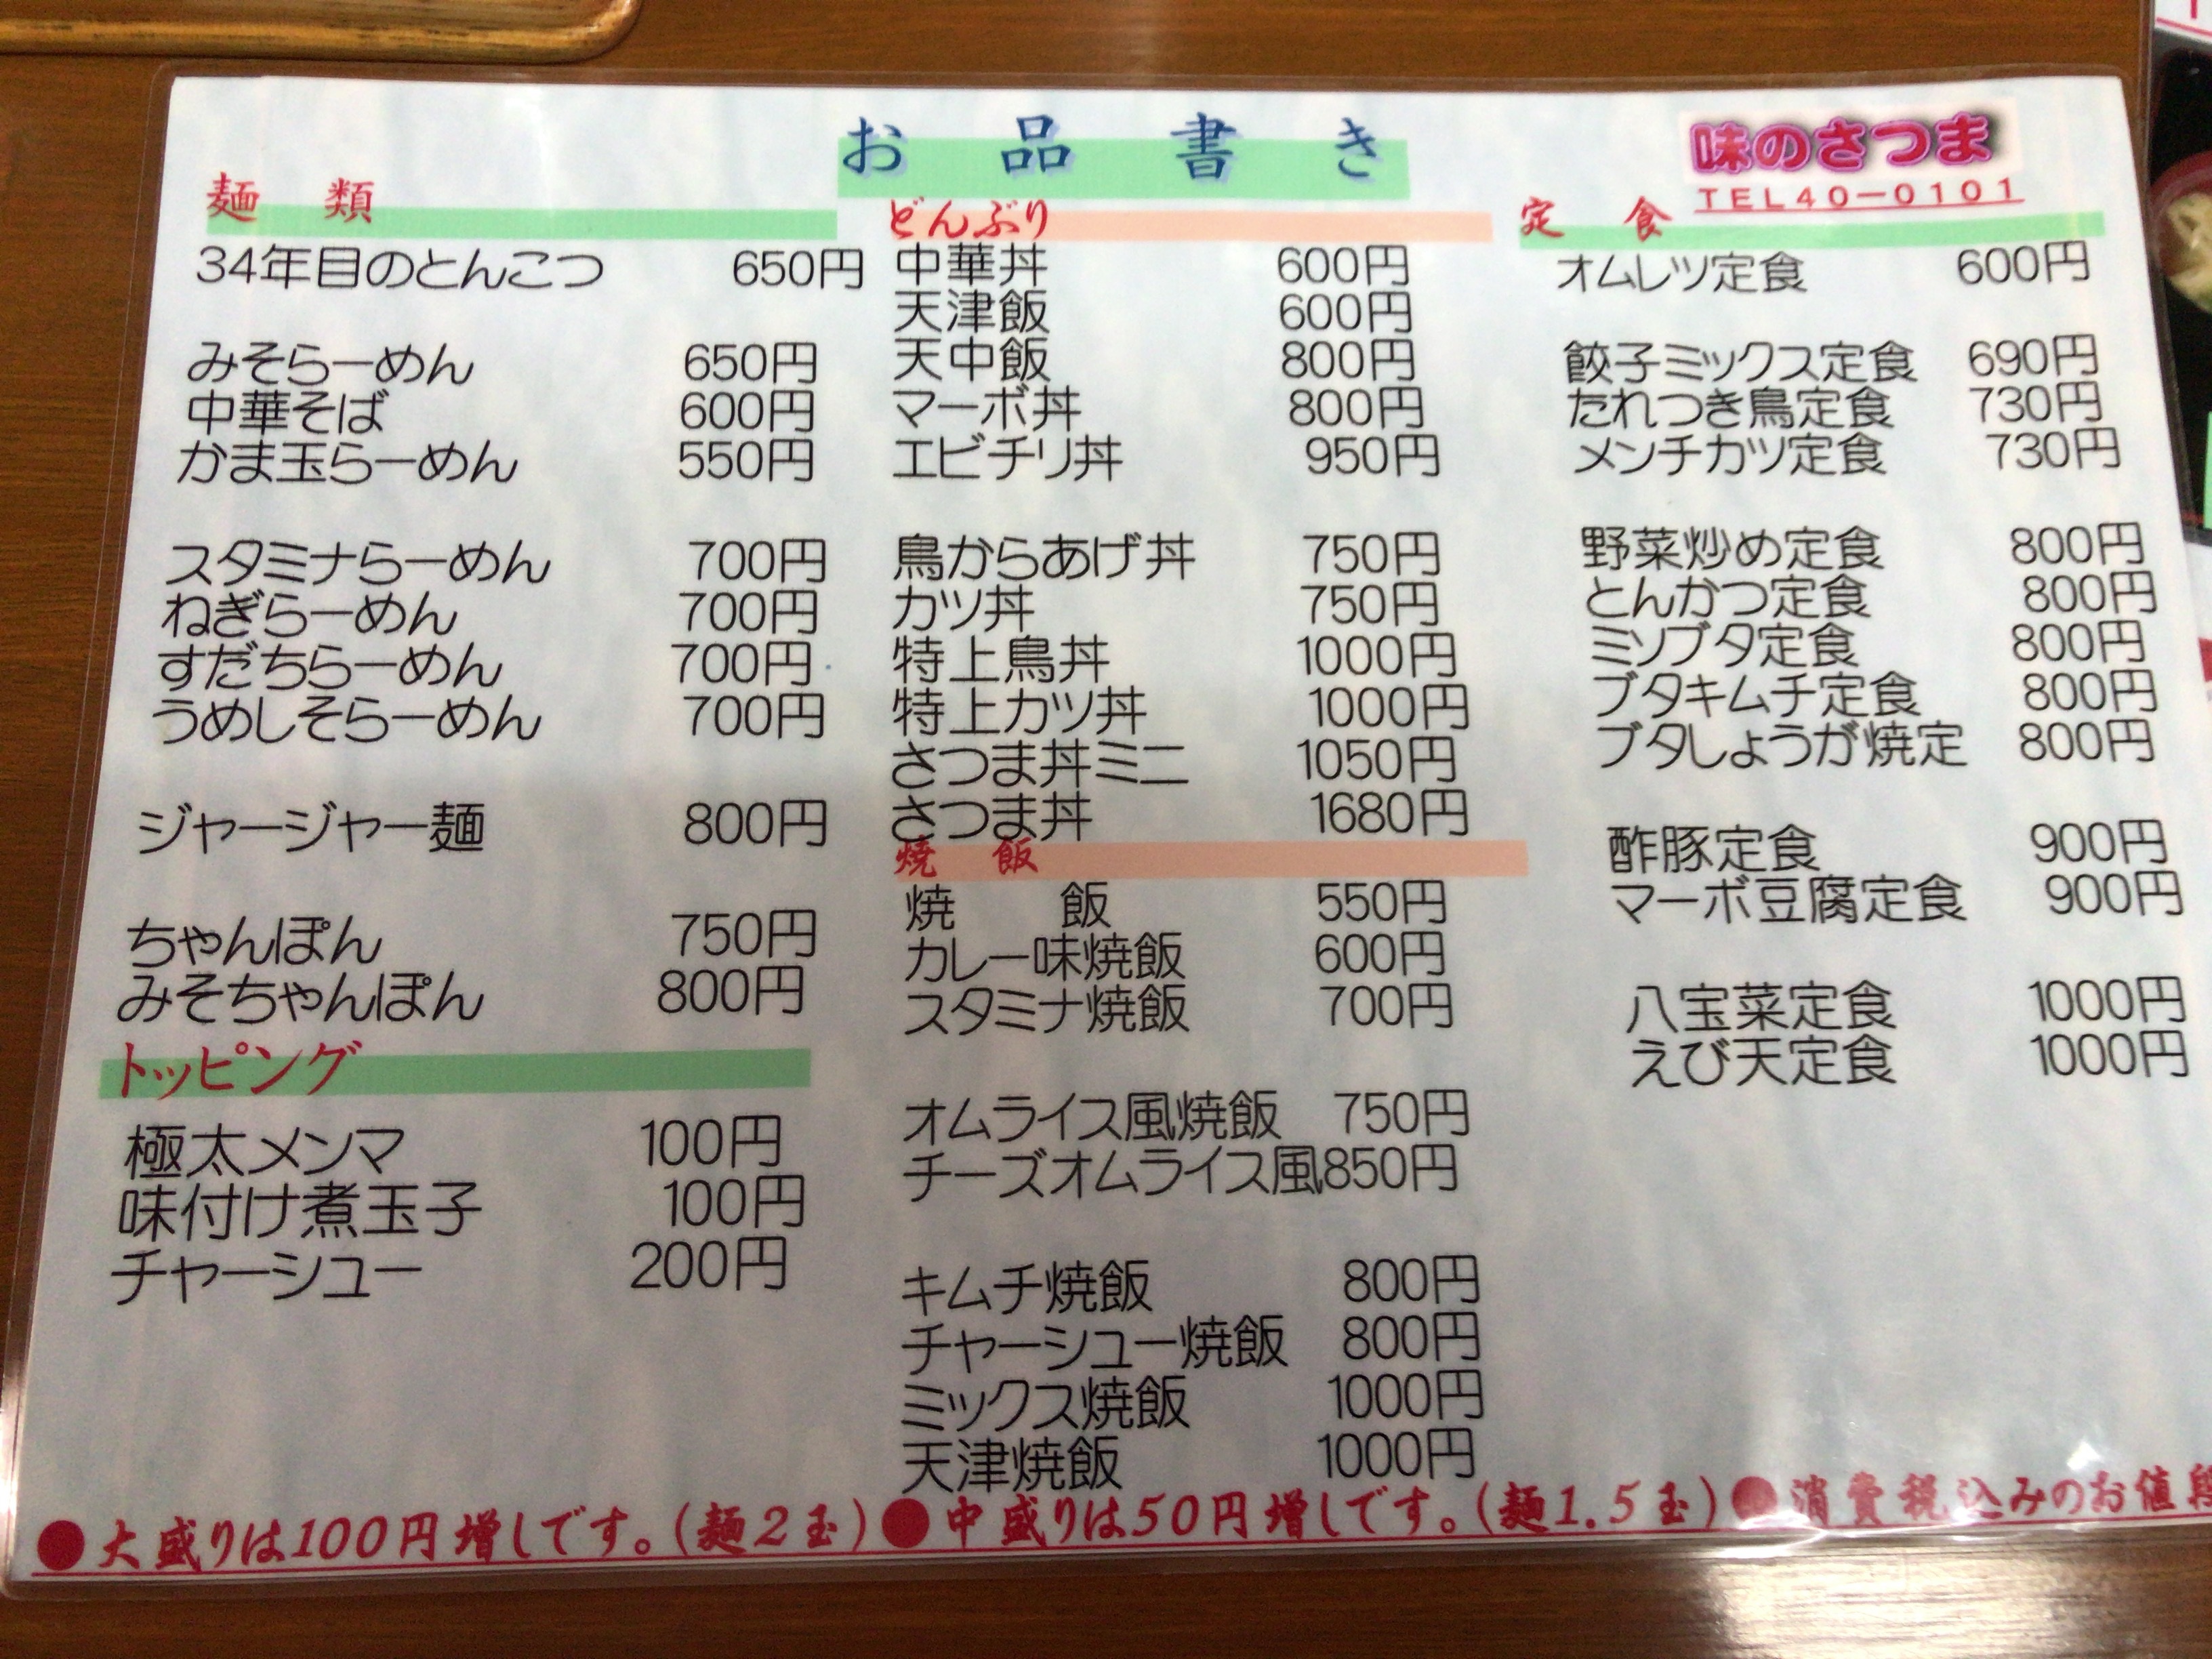 お品書き
味のさつま
TEL40-0101
麺類
34年目のとんこつ 650円
みそらーめん 650円
中華そば 600円
かま玉らーめん 550円
スタミナらーめん 700円
ねぎらーめん 700円
すだちらーめん 700円
うめしそらーめん 700円
ジャージャー麺 800円
ちゃんぽん 750円
みそちゃんぽん 800円
トッピング
極太メンマ 100円
味付け煮玉子 100円
チャーシュー 200円
どんぶり
中華丼 600円
天津飯 600円
天中飯 800円
マーボ丼 800円
エビチリ丼 950円
鳥からあげ丼 750円
カツ丼 750円
特上鳥丼 1000円
特上カツ丼 1000円
さつま丼ミニ 1050円
さつま丼 1680円
焼飯
焼飯 550円
カレー味焼飯 600円
スタミナ焼飯 700円
オムライス風焼飯 750円
チーズオムライス風850円
キムチ焼飯 800円
チャーシュー焼飯 800円
ミックス焼飯 1000円
天津焼飯 1000円
定食
オムレツ定食 600円
餃子ミックス定食 690円
たれつき鳥定食 730円
メンチカツ定食 730円
野菜炒め定食 800円
とんかつ定食 800円
ミソブタ定食 800円
ブタキムチ定食 800円
ブタしょうが焼定 800円
酢豚定食 900円
マーボ豆腐定食 900円
八宝菜定食 1000円
えび天定食 1000円
●大盛りは100円増しです。(麺2玉)●中盛りは50円増しです。(麺1.5玉)●消費税込みのお値段